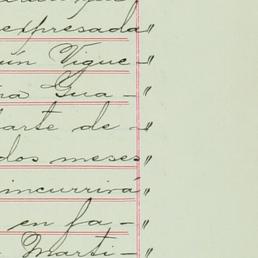 expresada "
ún Vigue- "
ra Gua- "
parte de- "
dos meses "
incurrirá "
en fa- "
Marti- "